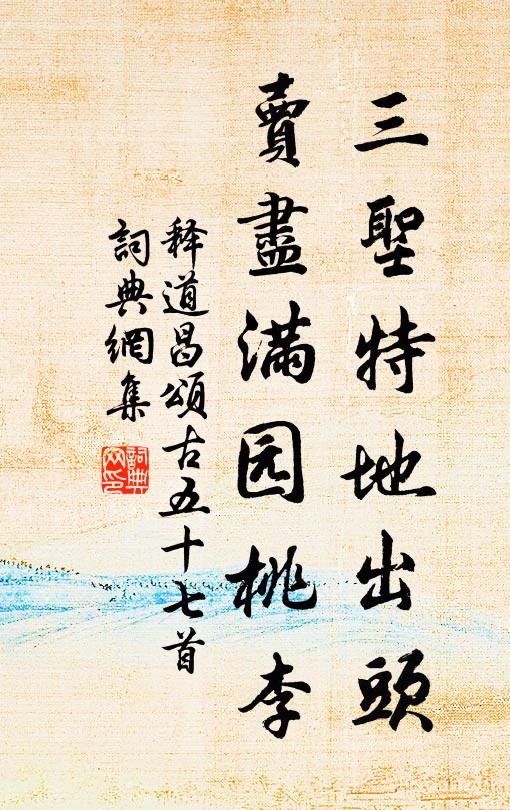 三聖特地出頭
賣盡滿园桃李
释道昌頌古五十七首
詞典網集
詞典
网印